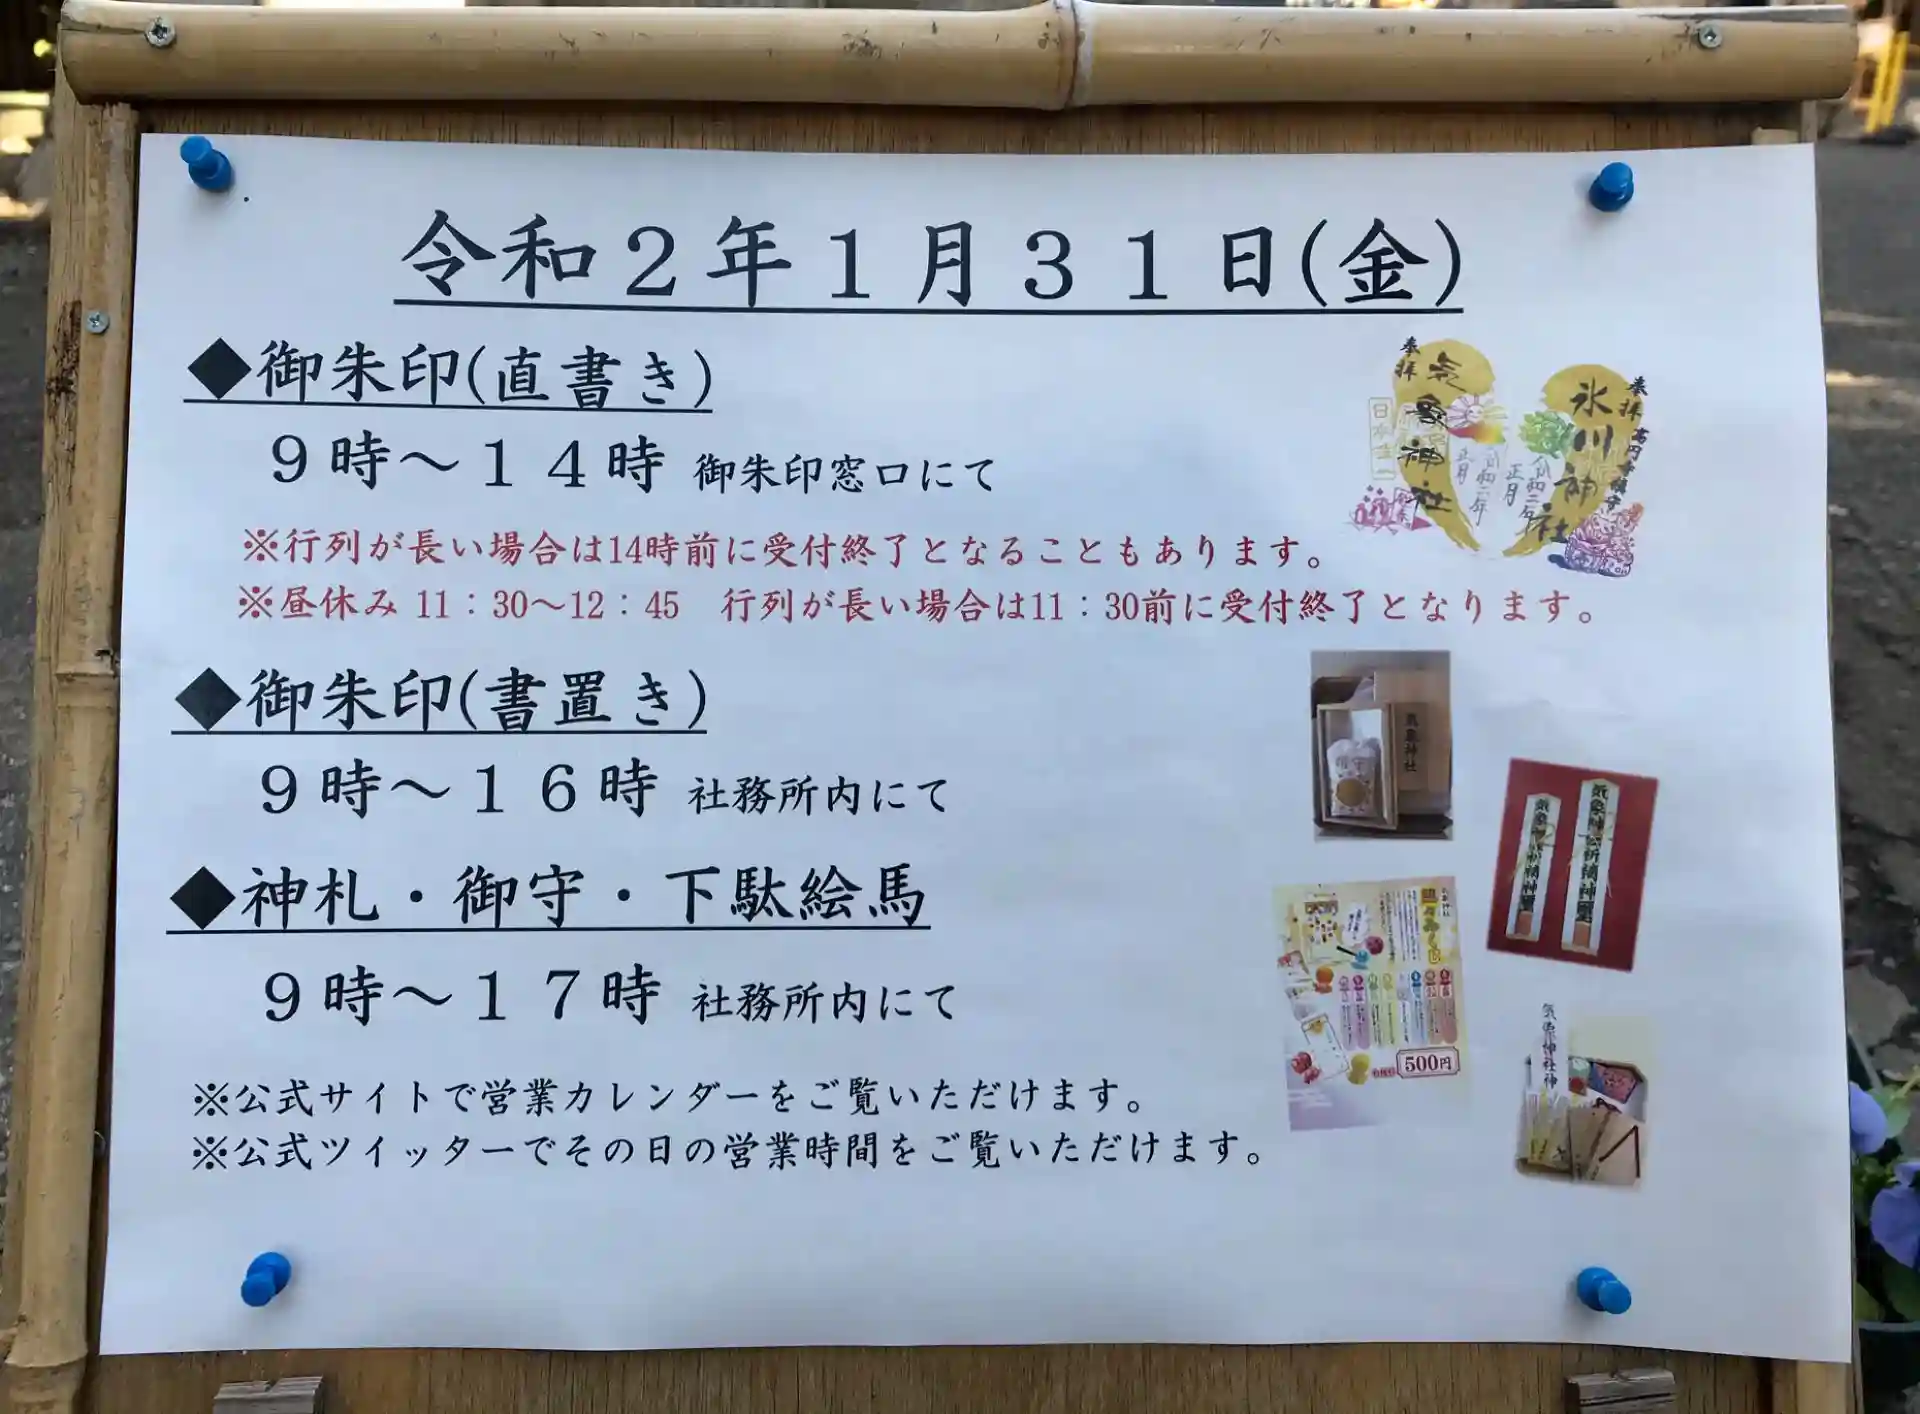 令和２年１月３１日(金)
◆御朱印(直書き)
９時～１４時 御朱印窓口にて
※行列が長い場合は14時前に受付終了となることもあります。
※昼休み 11：30～12：45　行列が長い場合は11：30前に受付終了となります。
◆御朱印(書置き)
９時～１６時 社務所内にて
◆神札・御守・下駄絵馬
９時～１７時 社務所内にて
※公式サイトで営業カレンダーをご覧いただけます。
※公式ツイッターでその日の営業時間をご覧いただけます。
奉拝
気象神社
日本唯一
令和二年
正月
奉拝
氷川神社
高円寺鎮守
令和二年
正月
気象神社
500円